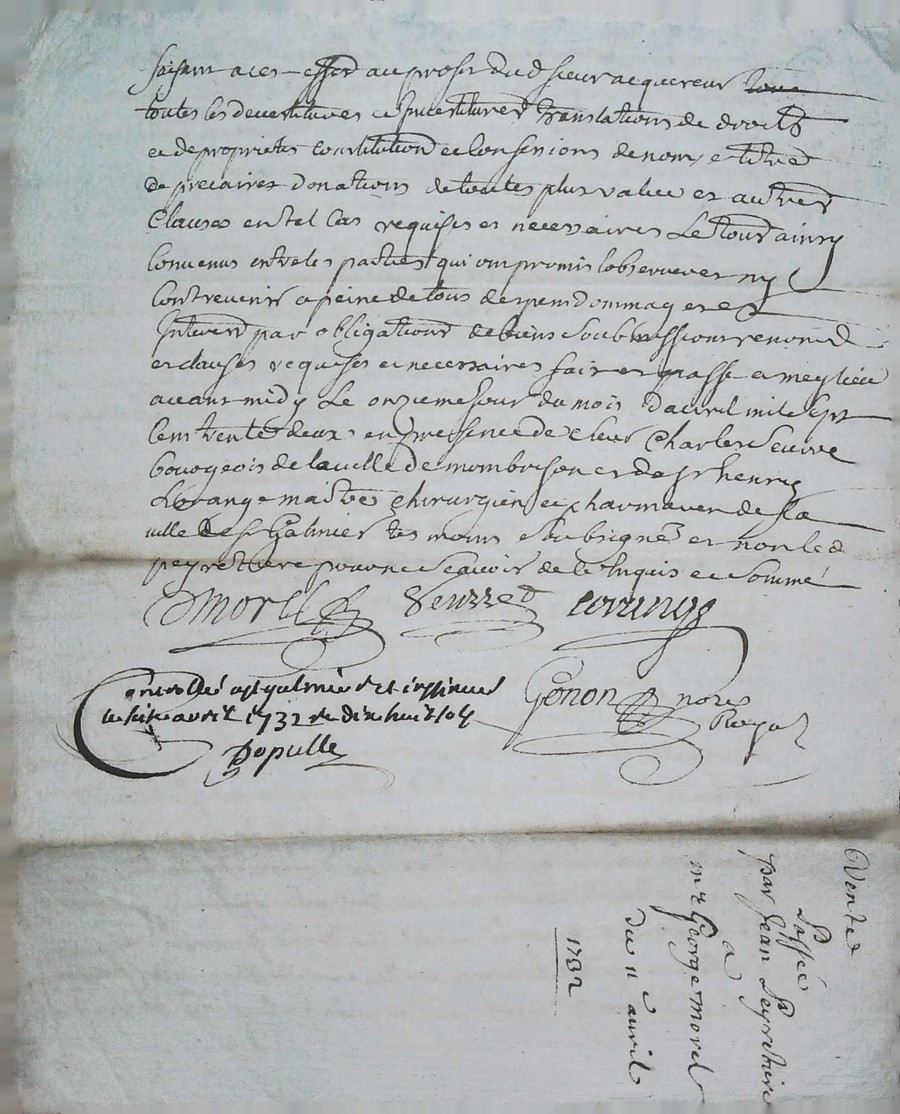 faisant a cet effet au proffit dud sieur acquereur toute
toutes les devestitures et Investitures translations de droits
et de proprietes constitution et Consensions de noms et titres
de precaires donations de toutes plus value et autres
Clauses en tel Cas requises et necessaires Le tout ainsy
Convenus entre les parties qui ont promis lobserver et ny
Contrevenir a peine de tous despens dommages et
Interets par obligations de biens soubmissions renond
et clauses requises et necessaires fait et passe
avant midy Le onzieme jour du mois davril mil sept
Cent trente deux en presence de sieur Charles
bourgeois de la ville de mombrison et de sr henry
Lorange maistre chirurgien et de la
ville de st Galmier tesmoins soubsignés et non led
peyrettiere pour ne scavoir de ce Enquis et sommé
Morel
Lorange
Controllé a st galmier et insinué
le avril 1732 dix huit sols
Populle
Gonon nore
Royal
Vente
Passée
par Jean Peyretiere
a
mr George morel
du 11e avril
1732